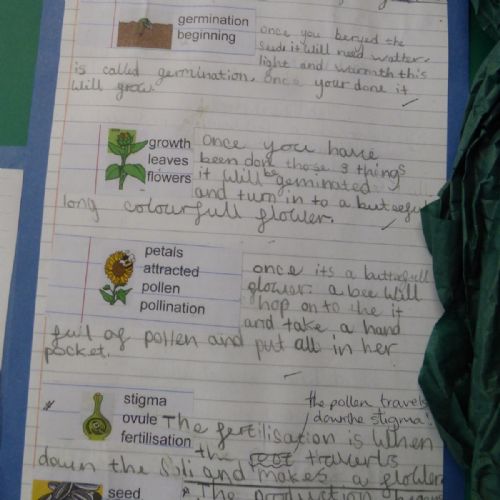 germination
beginning
once you beryed the
seeds it will need watter.
light and warmth this
is called germination. once your done it
will grow
growth
leaves
flowers
once you have
been done those 3 things
it will be geminated.
and turn in to a buteefull
long colourfull flower.
petals
attracted
pollen
pollination
once its a butterfull
flower. a bee will
hop on to the it
and take a hand
full of pollen and put all in her
pocket.
stigma
ovule
fertilisation
the pollen travels
down the stigma!
The fertilisation is when
the
down the and makes a flower
seed
The production of